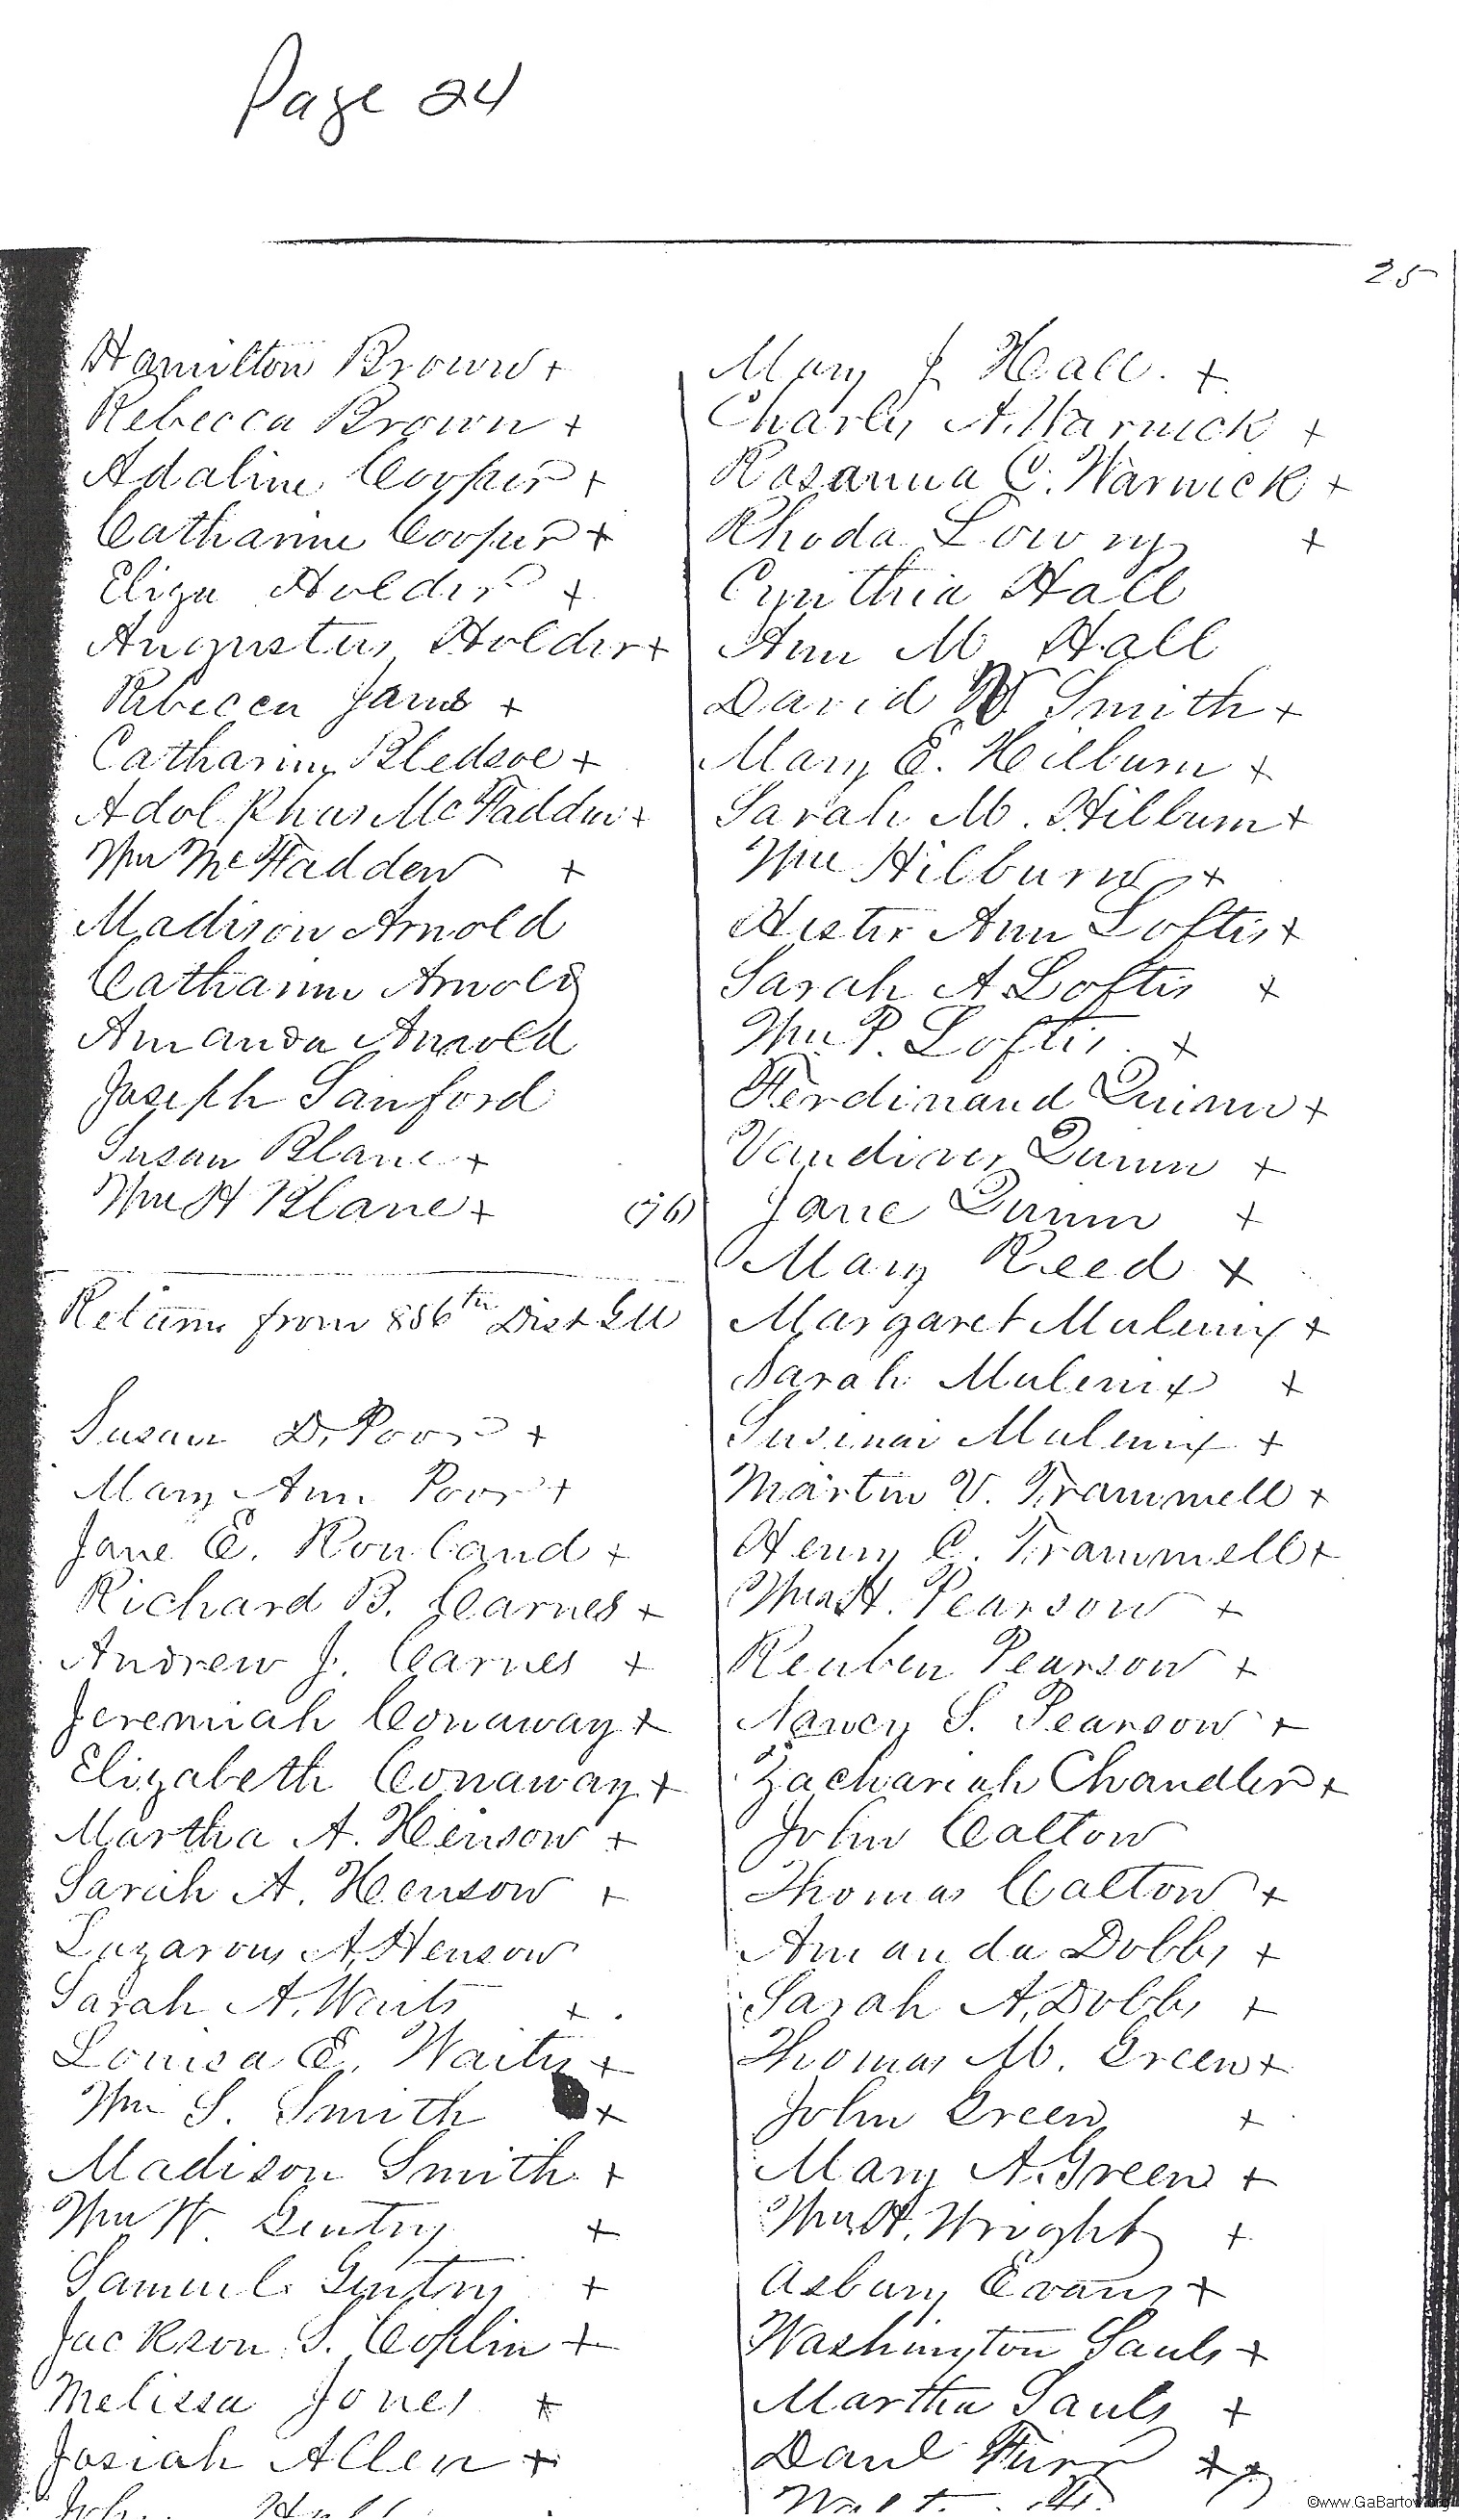 Page 24
25
Hamilton Brown +
Rebecca Brown +
Adaline Cooper +
Catharine Cooper +
Eliza Holder +
Augustus Holder +
Rebecca +
Catharine Bledsoe +
Adolphus McFadden +
Wm McFadden +
Madison Arnold
Catharine Arnold
Amanda Arnold
Joseph Sanford
Susan Blane +
Wm H Blane +
(76)
Return from 856th Dist GM
Susan D. Poor +
Mary Ann Poor +
Jane E. Rowland +
Richard B. Carnes +
Andrew J. Carnes +
Jeremiah Conaway +
Elizabeth Conaway +
Martha A. Henson +
Sarah A. Henson +
Lazarous A. Henson
Sarah A. Waits +
Louisa E. Waits +
Wm S. Smith +
Madison Smith +
Wm W Gentry +
Samuel Gentry +
Jackson S. Coplin +
Melissa Jones +
Josiah Allen +
Hall
Mary J Hall. +
Charles A. Warwick +
Rosanna C. Warwick +
Rhoda Lowry +
Cynthia Hall
Ann M Hall
David W Smith +
Mary E. Hilburn +
Sarah M. Hilburn +
Wm Hilburn +
Hester Ann Loftis +
Sarah A Loftis +
Wm P. Loftis +
Ferdinand Quinn +
Vandiver Quinn +
Jane Quinn +
Mary Reed +
Margaret Mulenix +
Sarah Mulenix +
Mulenix +
Martin V. Trammell +
Henry C. Trammell +
Wm H. Pearson +
Reuben Pearson +
Nancy S. Pearson +
Zachariah Chandler +
John Calton
Thomas Calton +
Amanda Dobbs +
Sarah A. Dobbs +
Thomas M. Green +
John Green +
Mary A. Green +
Wm H. Wright +
Asbury Evans +
Washington Sauls +
Martha Sauls +
Danl Furr +
©www.GaBartow.org